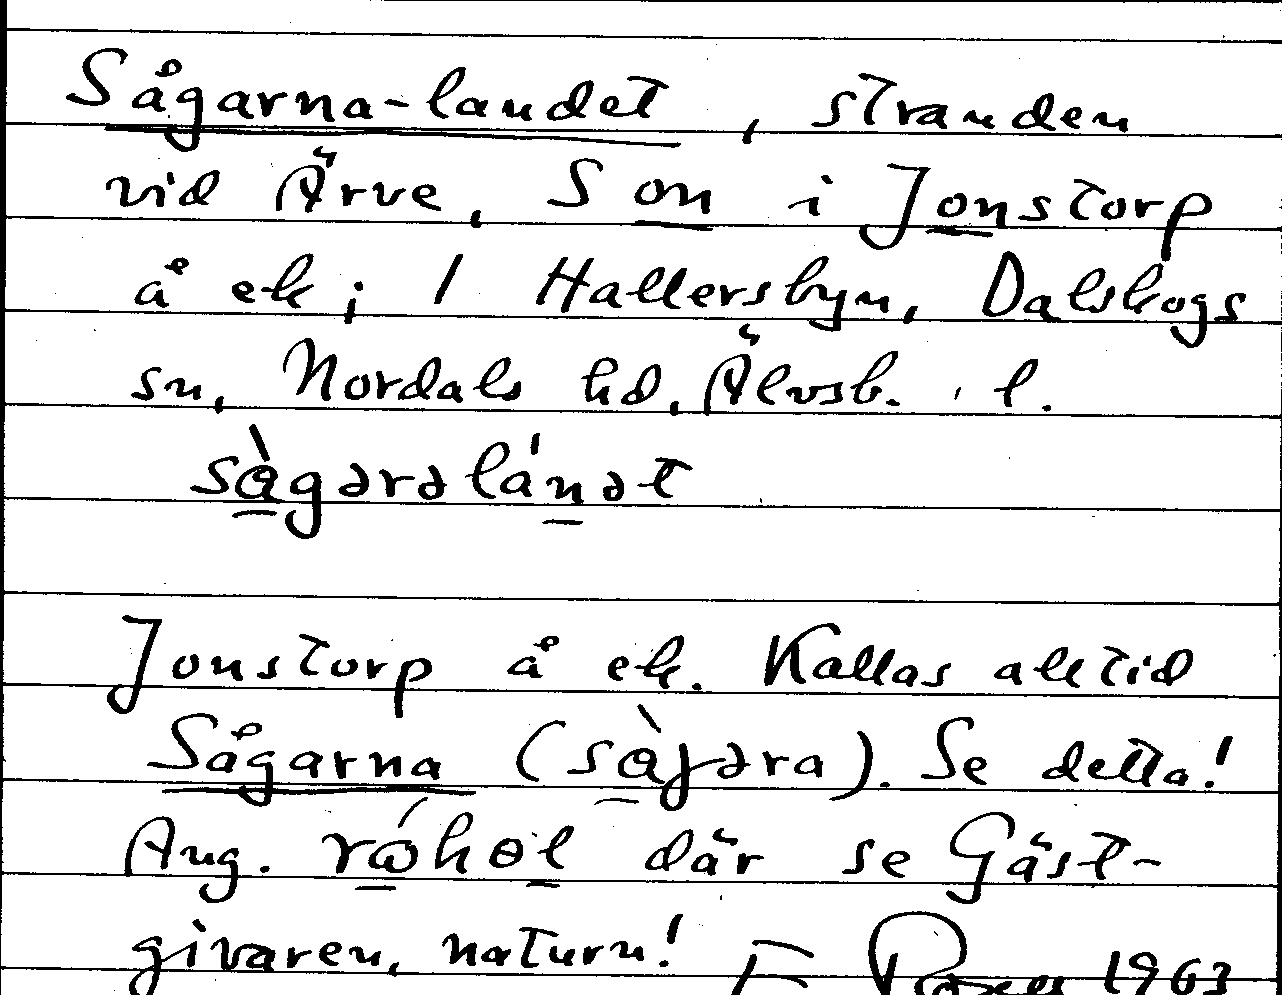 Sågarna-landet, stranden
vid Ärve, S om i Jonstorp
å ek; i Hallersbyn, Dalskogs
sn, Nordals hd, Älvsb. l.
sàgərəlánət
Jonstorp å ek. Kallas alltid
Sågarna (sàgəra). Se detta!
Ang. råhol där se Gäst-
givaren, naturn! 1963